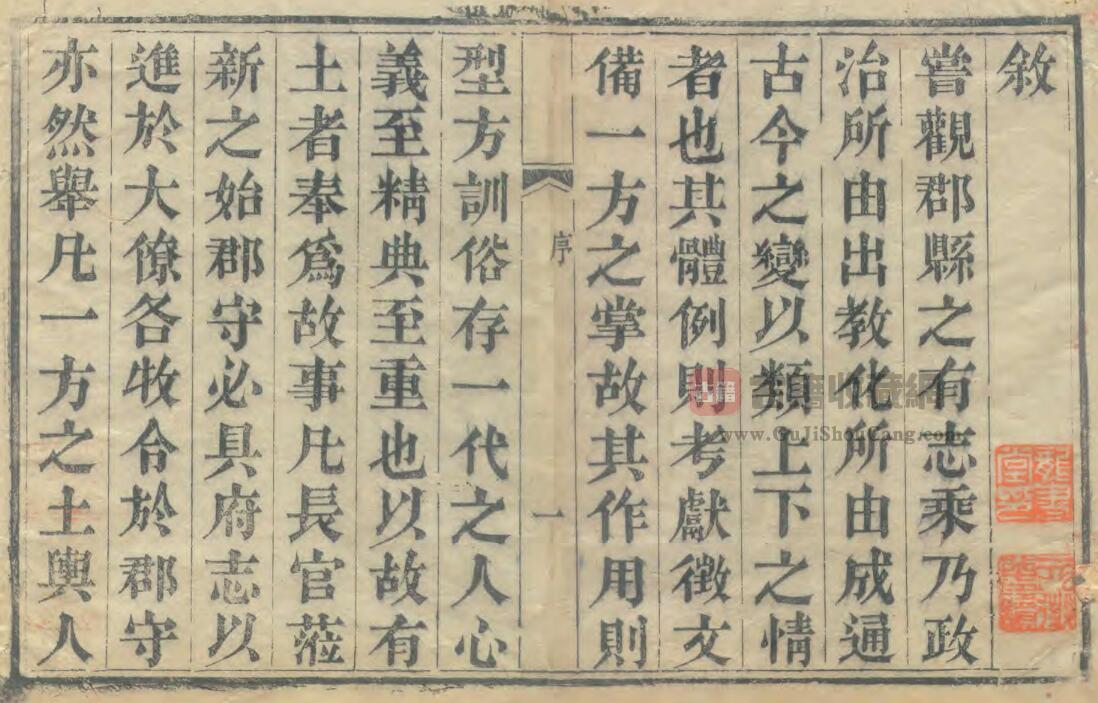 敘
嘗觀郡縣之有志乘乃政
治所由出教化所由成通
古今之變以類上下之情
者也其體例則考獻徵文
備一方之掌故其作用則
序
一
型方訓俗存一代之人心
義至精典至重也以故有
土者奉爲故事凡長官蒞
新之始郡守必具府志以
進於大僚各牧合於郡守
亦然舉凡一方之土輿人
古籍
古籍收藏網
www.GuJiShouCang.com